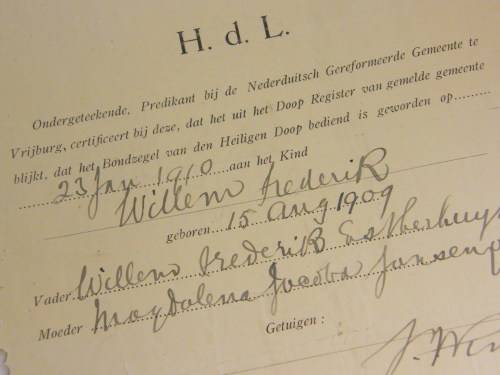 H. d. L.
Ondergeteekende, Predikant bij de Nederduitsch Gereformeerde Gemeente te
Vrijburg, certificeert bij deze, dat het uit het Doop Register van gemelde gemeente
blijkt, dat het Bondzegel van den Heiligen Doop bediend is geworden op.........
23 Jan 1910 aan het Kind
Willem Frederik
geboren 15 Aug 1909
Vader Willem Frederik Esterhuys
Moeder Magdalena Jacoba
Getuigen :